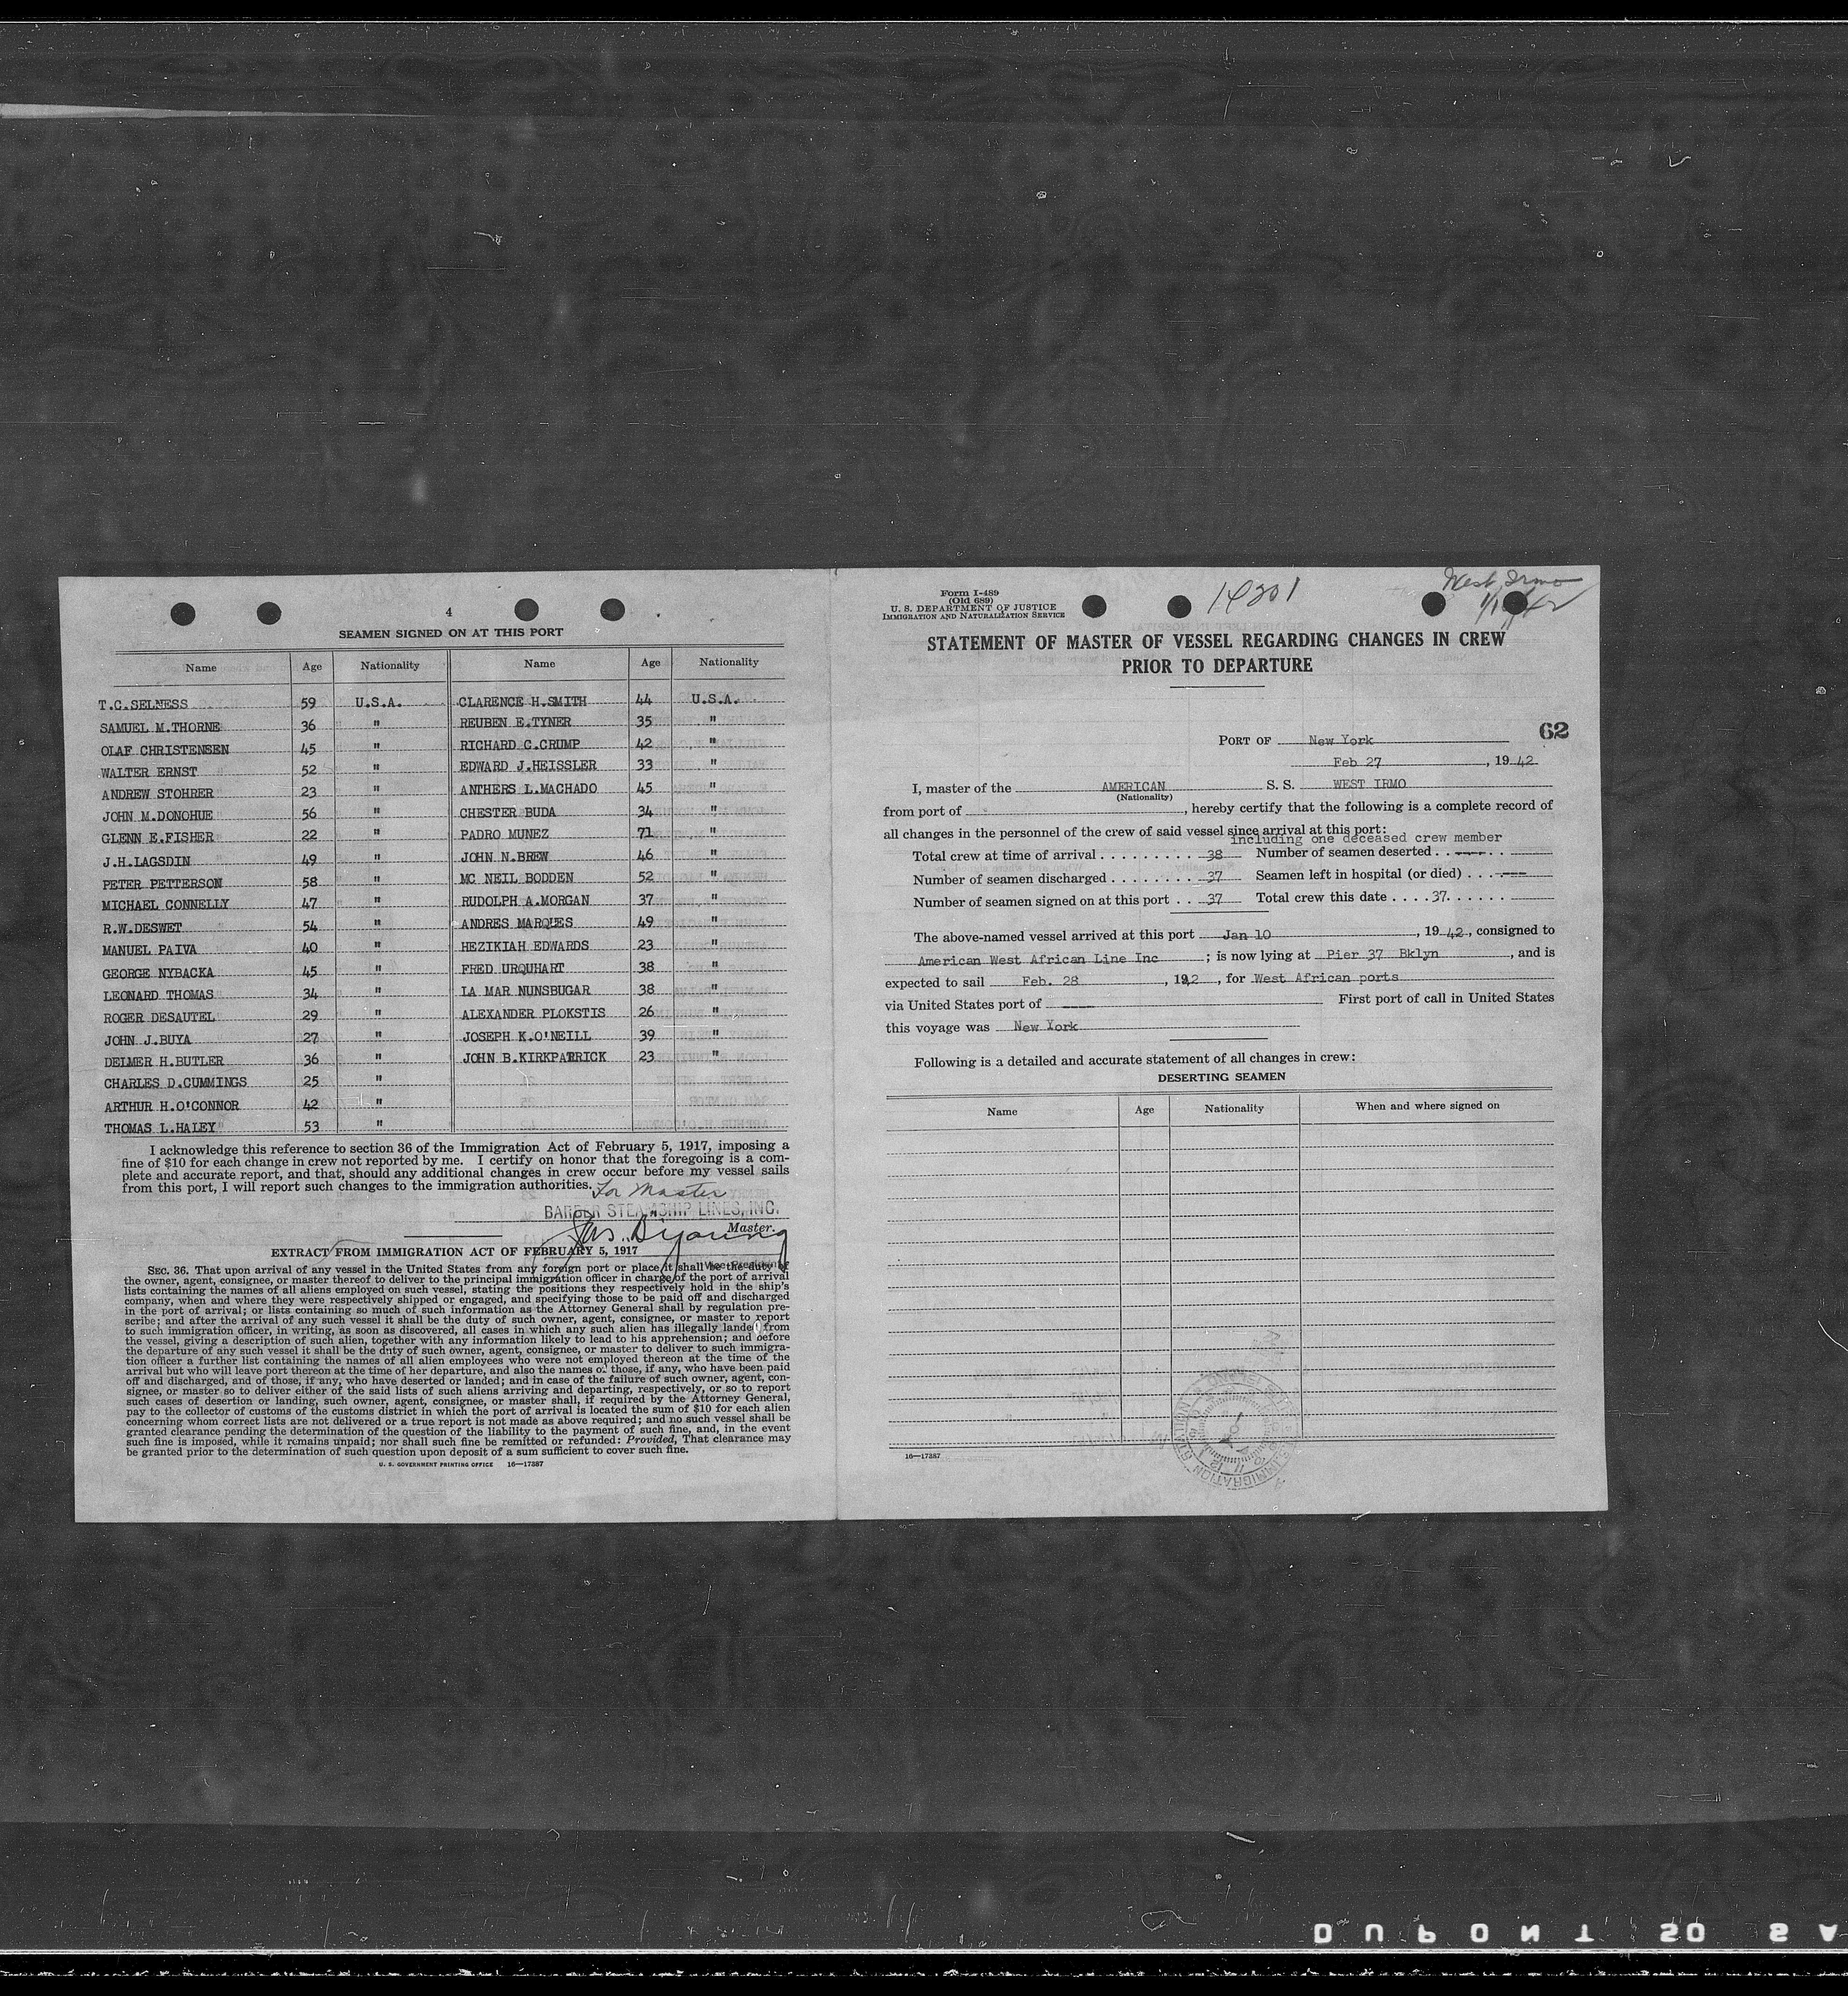 4
SEAMEN SIGNED ON AT THIS PORT
Name Age Nationality Name Age Nationality
T.G.SELNESS 59 U.S.A. CLARENCE H.SMITH 44 U.S.A.
SAMUEL M.THORNE 36 " REUBEN E.TYNER 35 "
OLAF CHRISTENSEN 45 " RICHARD C.CRUMP 42 "
WALTER ERNST 52 " EDWARD J.HEISSLER 33 "
ANDREW STOHRER 23 " ANTHERS L.MACHADO 45 "
JOHN M.DONOHUE 56 " CHESTER BUDA 34 "
GLENN E.FISHER 22 " PADRO MUNEZ 71 "
J.H.LAGSDIN 49 " JOHN N.BREW 46 "
PETER PETTERSON 58 " MC NEIL BODDEN 52 "
MICHAEL CONNELLY 47 " RUDOLPH A.MORGAN 37 "
R.W.DESWET 54 " ANDRES MARQUES 49 "
MANUEL PAIVA 40 " HEZIKIAH EDWARDS 23 "
GEORGE NYBACKA 45 " FRED URQUHART 38 "
LEONARD THOMAS 34 " LA MAR NUNSBUGAR 38 "
ROGER DESAUTEL 29 " ALEXANDER PLOKSTIS 26 "
JOHN J.BUYA 27 " JOSEPH K.O'NEILL 39 "
DELMER H.BUTLER 36 " JOHN B.KIRKPATRICK 23 "
CHARLES D.CUMMINGS 25 "
ARTHUR H.O'CONNOR 42 "
THOMAS L.HALEY 53 "
I acknowledge this reference to section 36 of the Immigration Act of February 5, 1917, imposing a
fine of $10 for each change in crew not reported by me. I certify on honor that the foregoing is a com-
plete and accurate report, and that, should any additional changes in crew occur before my vessel sails
from this port, I will report such changes to the immigration authorities.
For Master
BARBER STEAMSHIP LINES, INC.
Master.
EXTRACT FROM IMMIGRATION ACT OF FEBRUARY 5, 1917
Vice President
SEC. 36. That upon arrival of any vessel in the United States from any foreign port or place it shall be the duty of
the owner, agent, consignee, or master thereof to deliver to the principal immigration officer in charge of the port of arrival
lists containing the names of all aliens employed on such vessel, stating the positions they respectively hold in the ship's
company, when and where they were respectively shipped or engaged, and specifying those to be paid off and discharged
in the port of arrival; or lists containing so much of such information as the Attorney General shall by regulation pre-
scribe; and after the arrival of any such vessel it shall be the duty of such owner, agent, consignee, or master to report
to such immigration officer, in writing, as soon as discovered, all cases in which any such alien has illegally landed from
the vessel, giving a description of such alien, together with any information likely to lead to his apprehension; and before
the departure of any such vessel it shall be the duty of such owner, agent, consignee, or master to deliver to such immigra-
tion officer a further list containing the names of all alien employees who were not employed thereon at the time of the
arrival but who will leave port thereon at the time of her departure, and also the names of those, if any, who have been paid
off and discharged, and of those, if any, who have deserted or landed; and in case of the failure of such owner, agent, con-
signee, or master so to deliver either of the said lists of such aliens arriving and departing, respectively, or so to report
such cases of desertion or landing, such owner, agent, consignee, or master shall, if required by the Attorney General,
pay to the collector of customs of the customs district in which the port of arrival is located the sum of $10 for each alien
concerning whom correct lists are not delivered or a true report is not made as above required; and no such vessel shall be
granted clearance pending the determination of the question of the liability to the payment of such fine, and, in the event
such fine is imposed, while it remains unpaid; nor shall such fine be remitted or refunded: Provided, That clearance may
be granted prior to the determination of such question upon deposit of a sum sufficient to cover such fine.
U. S. GOVERNMENT PRINTING OFFICE 16—17387
Form I-489
(Old 689)
U. S. DEPARTMENT OF JUSTICE
IMMIGRATION AND NATURALIZATION SERVICE
14201
West Irmo
STATEMENT OF MASTER OF VESSEL REGARDING CHANGES IN CREW
PRIOR TO DEPARTURE
62
PORT OF New York
Feb 27, 1942
I, master of the AMERICAN S. S. WEST IRMO
(Nationality)
from port of , hereby certify that the following is a complete record of
all changes in the personnel of the crew of said vessel since arrival at this port:
including one deceased crew member
Total crew at time of arrival . . . . . . . . . 38 Number of seamen deserted . . ---- . .
Number of seamen discharged . . . . . . . . 37 Seamen left in hospital (or died) . . . ----
Number of seamen signed on at this port . . 37 Total crew this date . . . . 37. . . . . .
The above-named vessel arrived at this port Jan 10, 1942, consigned to
American West African Line Inc ; is now lying at Pier 37 Bklyn, and is
expected to sail Feb. 28, 1942, for West African ports
via United States port of ---- First port of call in United States
this voyage was New York
Following is a detailed and accurate statement of all changes in crew:
DESERTING SEAMEN
Name Age Nationality When and where signed on
16—17387
DUPONT 50 SA